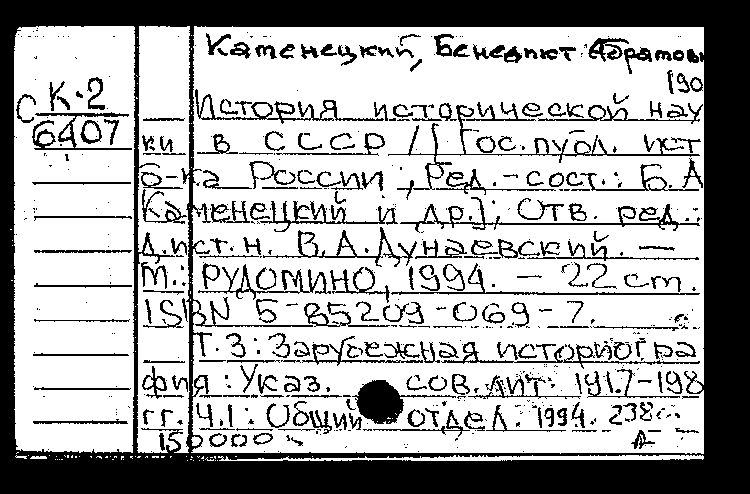 Каменецкий, Бенедикт Абрамови
190
С К-2
6407
История исторической нау
ки в СССР / [Гос.публ. ист
б-ка России; Ред.-сост.: Б.А
Каменецкий и др.]; Отв. ред.:
д.ист.н. В.А.Дунаевский. —
М.: РУДОМИНО, 1994. - 22 cm.
ISBN 5-85209-069-7.
Т.3: Зарубежная историогра
фия: Указ. сов.лит. 1917-198
гг. Ч.1: Общий отдел. 1994. 238с.
150000